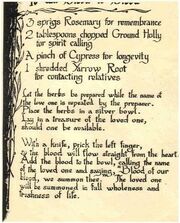 3 sprigs Rosemary for remembrance
2 tablespoons chopped Ground Holly
for spirit calling
A pinch of Cypress for longevity
1 shredded Yarrow Root
for contacting relatives
Let the herbs be prepared while the name of
the low one is repeated by the preparer.
Place the herbs in a silver bowl.
Lay in a treasure of the loved one,
should one be available.
With a knife, prick the left finger,
the blood will flow straight from the heart.
Add the blood to the bowl, calling the name
of the loved one and saying, "Blood of our
you, we summon thee." The loved one
will be summoned in full wholeness and
freshness of life.